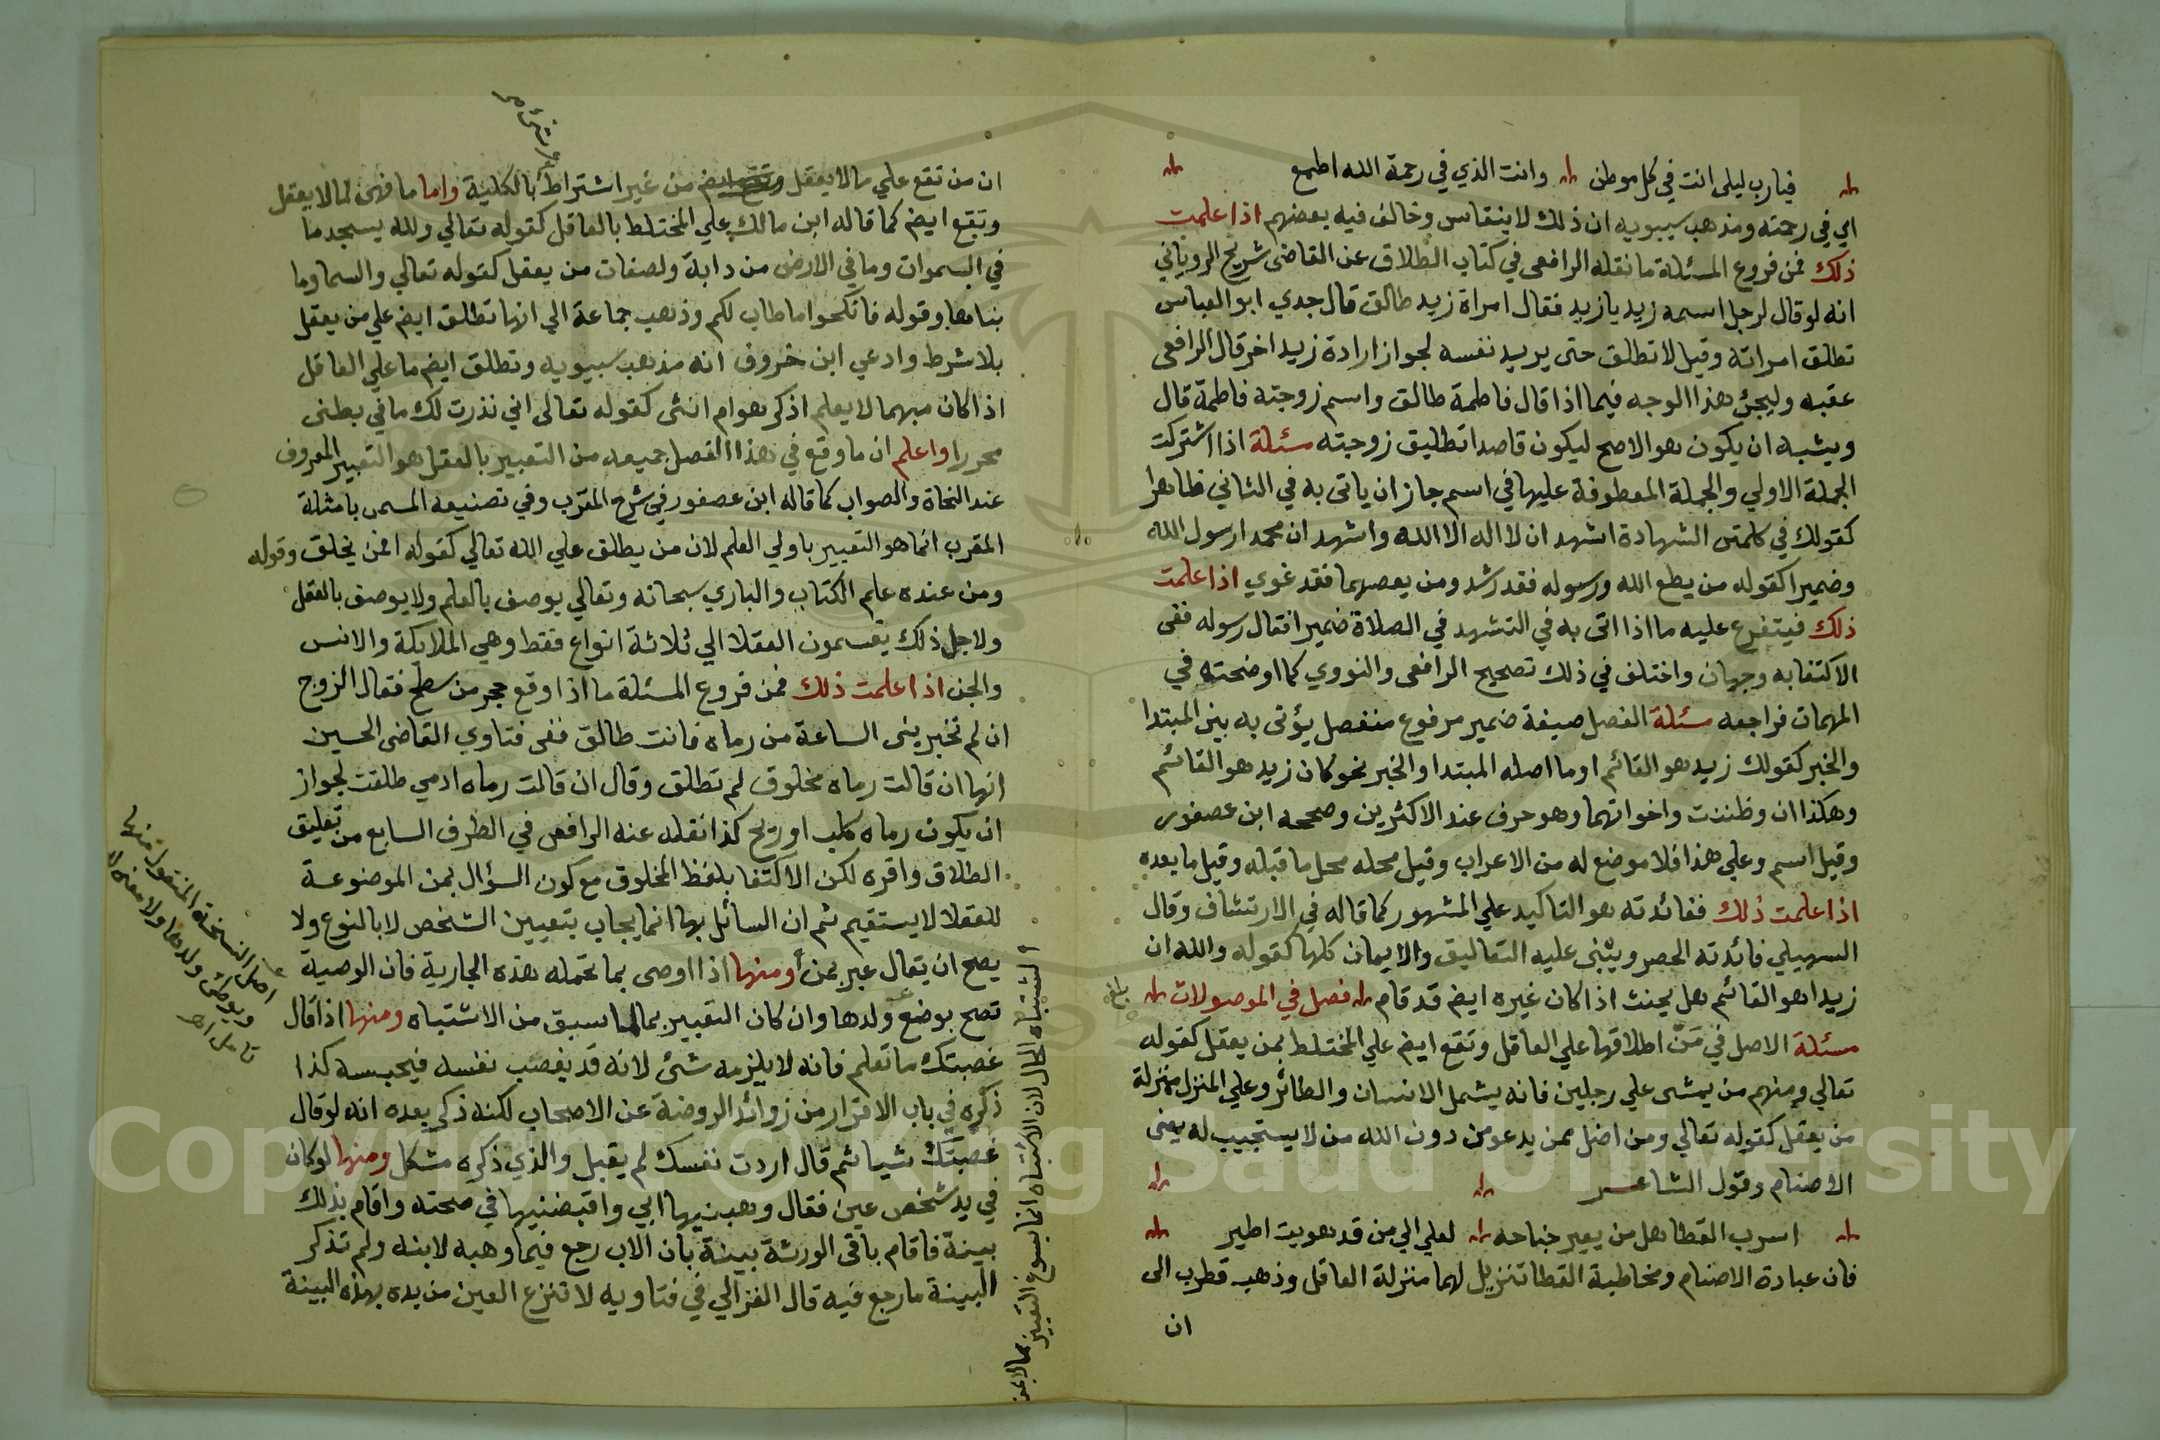 فيارب ليلى انت في كل موطن وانت الذي في رحمة الله اطمع
اي في رحمته ومذهب سيبويه ان ذلك لا ينقاس وخالف فيه بعضهم اذا علمت
ذلك فمن فروع المسئلة ما نقله الرافعي في كتاب الطلاق عن القاضي شريح الروياني
انه لو قال لرجل اسمه زيد يا زيد فقال امراة زيد طالق قال جدي ابو العباس
تطلق امراته وقيل لا تطلق حتى يريد نفسه لجواز ارادة زيد اخر قال الرافعي
عقبه وليجئ هذا الوجه فيما اذا قال فاطمة طالق واسم زوجته فاطمة قال
ويشبه ان يكون هو الاصح ليكون قاصدا تطليق زوجته مسئلة اذا اشتركت
الجملة الاولي والجملة المعطوفة عليها في اسم جاز ان ياتى به في الثاني ظاهرا
كقولك في كلمتى الشهادة اشهد ان لا اله الا الله واشهد ان محمدا رسول الله
وضميرا كقوله من يطع الله ورسوله فقد رشد ومن يعصهما فقد غوي اذا علمت
ذلك فيتفرع عليه ما اذا اتى به في التشهد في الصلاة ضميرا فقال رسوله ففى
الاكتفا به وجهان واختلف في ذلك تصحيح الرافعى والنووي كما اوضحته في
المهمات فراجعه مسئلة الفصل صيغة ضمير مرفوع منفصل يؤتى به بين المبتدا
والخبر كقولك زيد هو القائم او ما اصله المبتدا والخبر نحو كان زيد هو القائم
وهكذا ان وظننت واخواتهما وهو حرف عند الاكثرين وصححه ابن عصفور
وقيل اسم وعلي هذا فلا موضع له من الاعراب وقيل محله محل ما قبله وقيل ما بعده
اذا علمت ذلك ففائدته هو التاكيد علي المشهور كما قاله في الارتشاف وقال
السهيلي فائدته الحصر وينبنى عليه التعاليق والايمان كلها كقوله والله ان
زيدا هو القائم هل يحنث اذا كان غيره ايضا قد قام فصل في الموصولات
مسئلة الاصل في مَنْ اطلاقها علي العاقل وتقع ايضا علي المختلط بمن يعقل كقوله
تعالي ومنهم من يمشى علي رجلين فانه يشمل الانسان والطائر وعلي المنزل منزلة
من يعقل كقوله تعالي ومن اضل ممن يدعو من دون الله من لا يستجيب له يعنى
الاصنام وقول الشاعر
اسرب القطا هل من يعير جناحه لعلي الي من قد هويت اطير
فان عبادة الاصنام ومخاطبة القطا تنزيل لهما منزلة العاقل وذهب قطرب الى
ان
ان من تقع علي ما لا يعقل من غير اشتراط بالكلية واما ما فهى لما لا يعقل
وتقع ايضا كما قاله ابن مالك علي المختلط بالعاقل كقوله تعالي ولله يسجد ما
في السموات وما في الارض من دابة ولصفات من يعقل كقوله تعالي والسما وما
بناها وقوله فانكحوا ما طاب لكم وذهب جماعة الي انها تطلق ايضا علي من يعقل
بلا شرط وادعي ابن خروف انه مذهب سيبويه وتطلق ايضا ما علي العاقل
اذا كان مبهما لا يعلم اذكر هو ام انثى كقوله تعالى اني نذرت لك ما في بطنى
محررا واعلم ان ما وقع في هذا الفصل جميعه من التعبير بالعقل هو التعبير المعروف
عند النحاة والصواب كما قاله ابن عصفور في شرح المقرب وفي تصنيعه المسمى بامثلة
المقرب انما هو التعبير باولي العلم لان من يطلق علي الله تعالي كقوله افمن يخلق وقوله
ومن عنده علم الكتاب والباري سبحانه وتعالي يوصف بالعلم ولا يوصف بالعقل
ولاجل ذلك يقسمون العقلا الي ثلاثة انواع فقط وهي الملايكة والانس
والجن اذا علمت ذلك فمن فروع المسئلة ما اذا وقع حجر من سطح فقال الزوج
ان لم تخبرينى الساعة من رماه فانت طالق ففى فتاوي القاضى الحسين
انها ان قالت رماه مخلوق لم تطلق وقال ان قالت رماه ادمي طلقت لجواز
ان يكون رماه كلب او ريح كذا نقله عنه الرافعي في الطرف السابع من تعليق
الطلاق واقره لكن الاكتفا بلفظ المخلوق مع كون السؤال بمن الموضوعة
للعقلا لا يستقيم ثم ان السائل بها انما يجاب بتعيين الشخص لا بالنوع ولا
يصح ان يقال عبر بمن ومنها اذا اوصى بما تحمله هذه الجارية فان الوصية
تصح بوضع ولدها وان كان التعبير بما لما سبق من الاشتباه ومنها اذا قال
غصبتك ما تعلم فانه لا يلزمه شئ لانه قد يغصب نفسه فيحبسه كذا
ذكره في باب الاقرار من زوائد الروضة عن الاصحاب لكنه ذكر بعده انه لو قال
غصبتك شيا ثم قال اردت نفسك لم يقبل والذي ذكره مشكل ومنها لو كان
في يد شخص عين فقال وهبنيها ابي واقبضنيها في صحته واقام بذلك
بينة فاقام باقى الورثة بينة بان الاب رجع فيما وهبه لابنه ولم تذكر
البينة ما رجع فيه قال الغزالي في فتاويه لا تنزع العين من يده بهذه البينة
اصل النسخة المنقول منها
ويوضع ولدها ولا معنى له
تامل اه
الاشتباه الحال لان الاشتباه انما يسوغ التعبير بما لا بمن